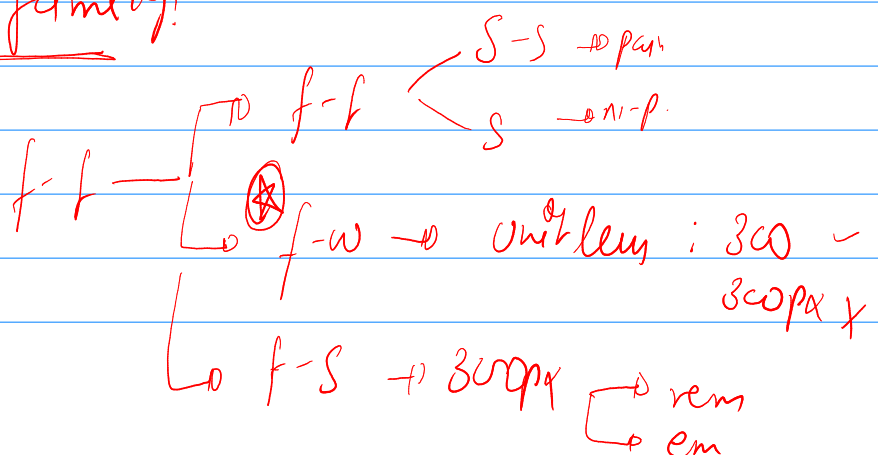 family!
S-S → para
f-f
S → n-p.
f-f
f-w → unitless : 300 ✓
300px x
f-S → 300px
rem
em